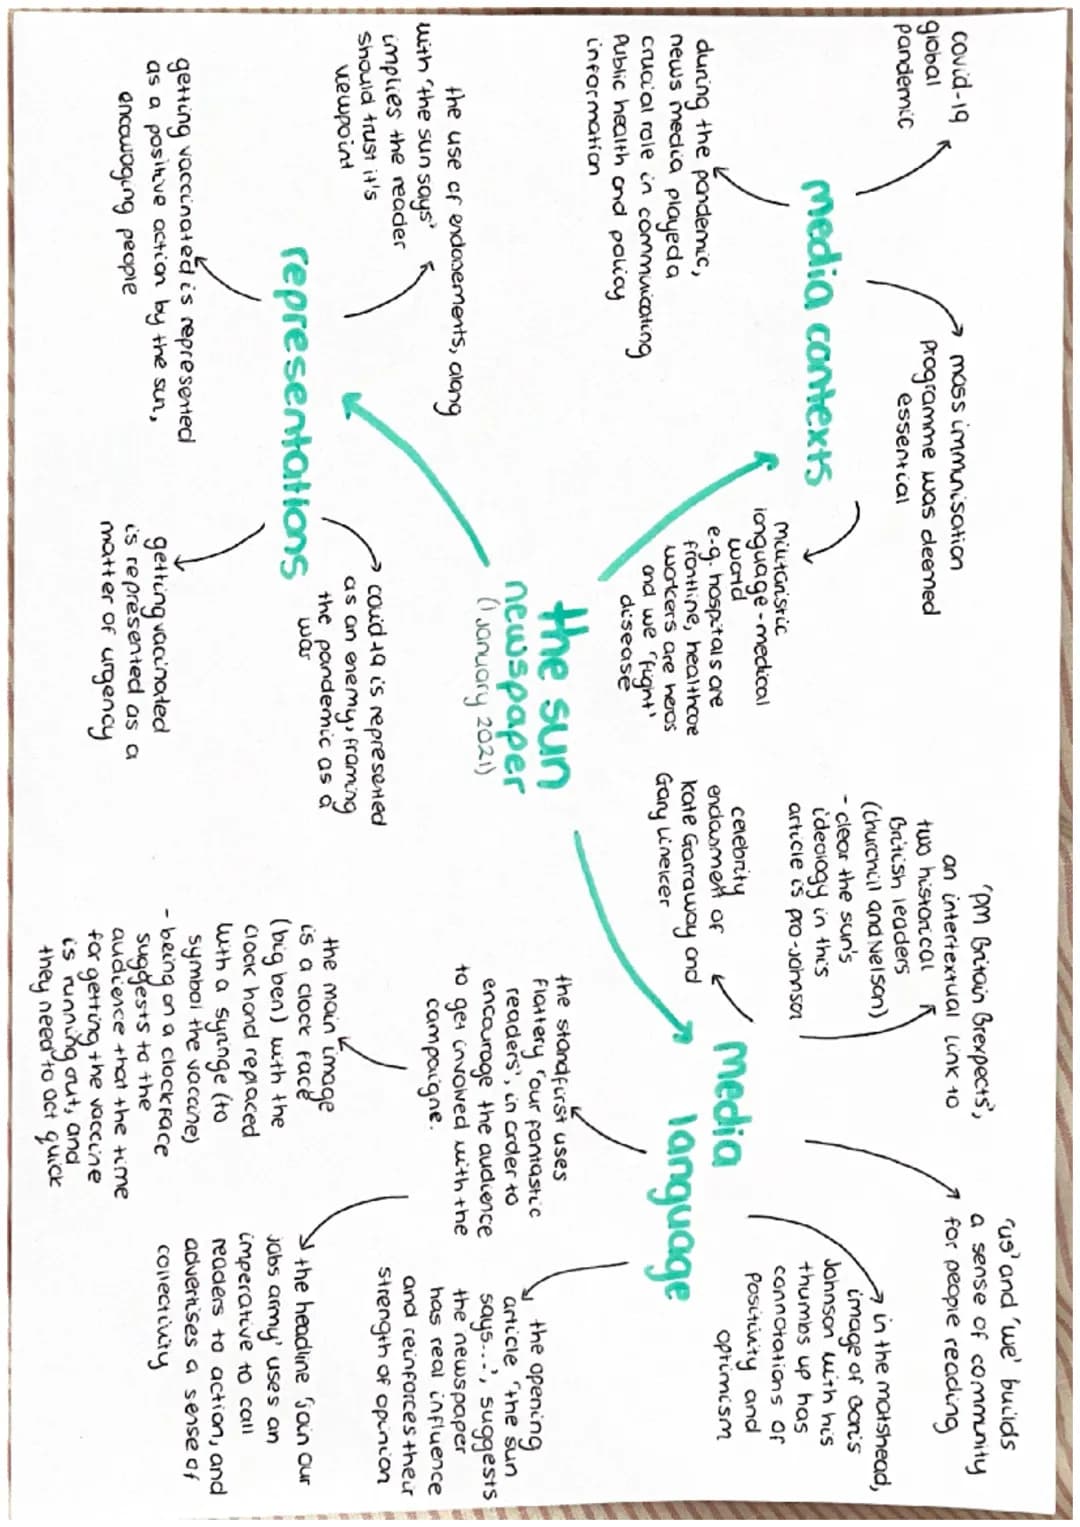 the sun
newspaper
(1 January 2021)
media contexts
covid-19
global
pandemic
mass immunisation
programme was deemed
essential
during the pandemic,
news media played a
crucial role in communicating
public health and policy
information
militaristic
language - medical
world
e.g. hospitals are
frontline, healthcare
workers are heros
and we 'fight'
disease
representations
the use of endorsements, along
with 'the sun says'
implies the reader
should trust it's
viewpoint
getting vaccinated is represented
as a positive action by the sun,
encouraging people
covid 19 is represented
as an enemy, framing
the pandemic as a
war
getting vaccinated
is represented as a
matter of urgency
media
language
'pm Britain Brexpects',
an intertextual link to
two historical
British leaders
(churchill and Nelson)
- clear the sun's
ideology in this
article is pro-Johnson
'us' and 'we' builds
a sense of community
for people reading
celebrity
endorsment of
Kate Garraway and
Gary Lineker
in the matshead,
image of Boris
Johnson with his
thumbs up has
connotations of
positivity and
optimism
the standfirst uses
flattery 'our fantastic
readers', in order to
encourage the audience
to get involved with the
campaigne.
the opening
article 'the sun
says...', suggests
the newspaper
has real influence
and reinforces their
strength of opinion
the main image
is a clock face
(big ben) with the
clock hand replaced
with a syringe (to
symbol the vaccine)
- being on a clockface
suggests to the
audience that the time
for getting the vaccine
is running out, and
they need to act quick
the headline 'join our
jabs army' uses an
imperative to call
readers to action, and
advertises a sense of
collectivity